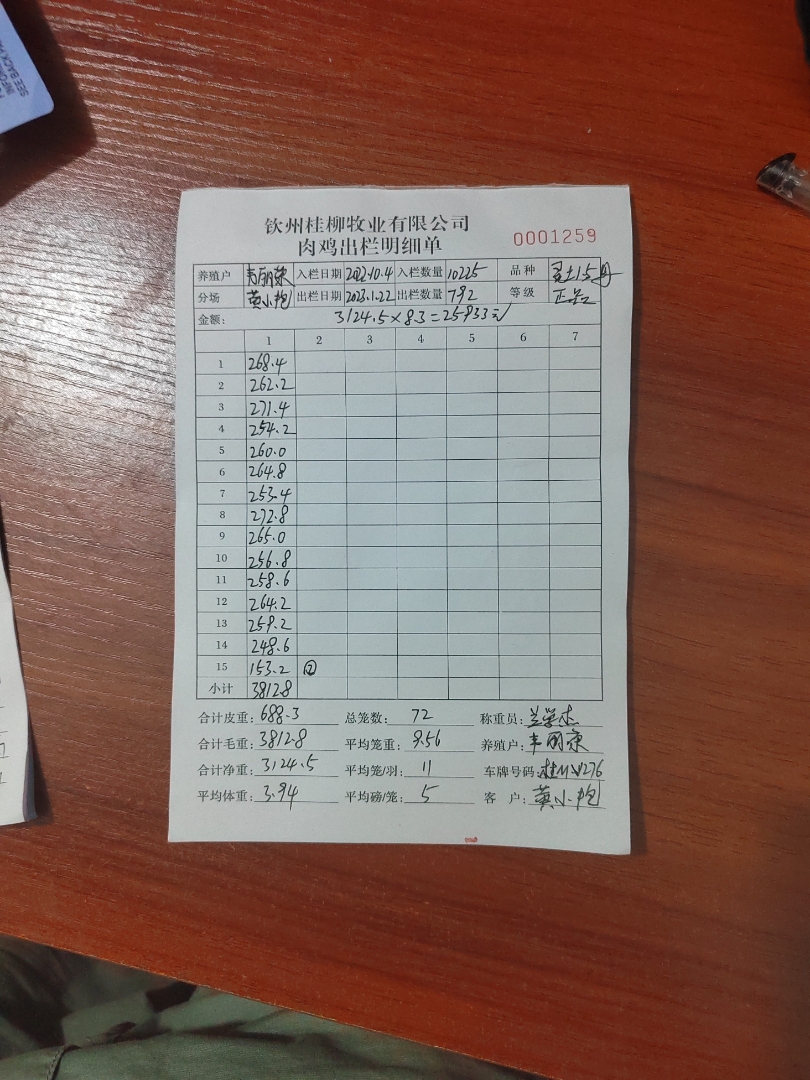 SEE BACK
钦州桂柳牧业有限公司
肉鸡出栏明细单
0001259
养殖户 入栏日期 2022.10.4 入栏数量 10225 品种
分场 黄小艳 出栏日期 2023.1.22 出栏数量 792 等级 正品
金额: 3124.5×8.3=25933元
1 2 3 4 5 6 7
1 268.4
2 262.2
3 271.4
4 254.2
5 260.0
6 264.8
7 253.4
8 272.8
9 265.0
10 256.8
11 258.6
12 264.2
13 259.2
14 248.6
15 153.2 ⑫
小计 3812.8
合计皮重: 688.3 总笼数: 72 称重员:
合计毛重: 3812.8 平均笼重: 9.56 养殖户:
合计净重: 3124.5 平均笼/羽: 11 车牌号码:
平均体重: 3.94 平均磅/笼: 5 客 户: 黄小艳